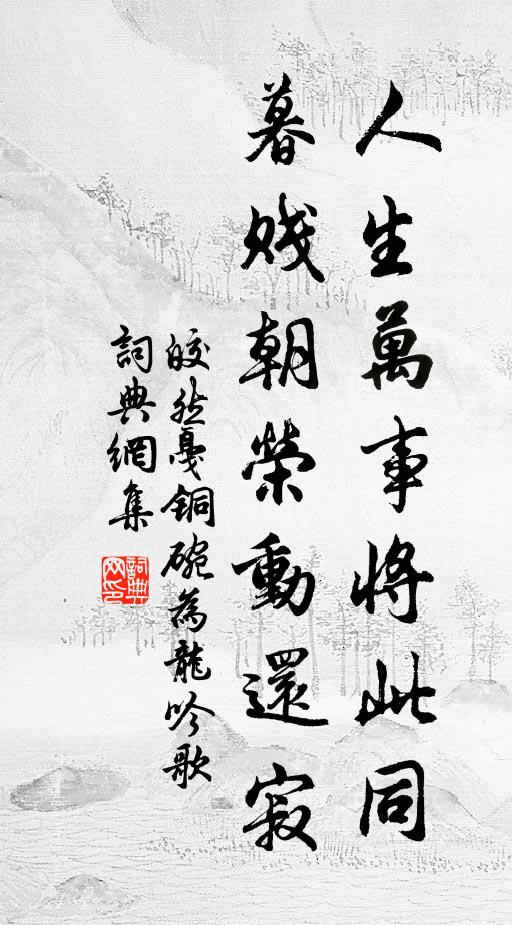 人生萬事將此同
暮賤朝榮動還寂
皎然戛銅碗為龍吟歌
詞典網集
詞典网印